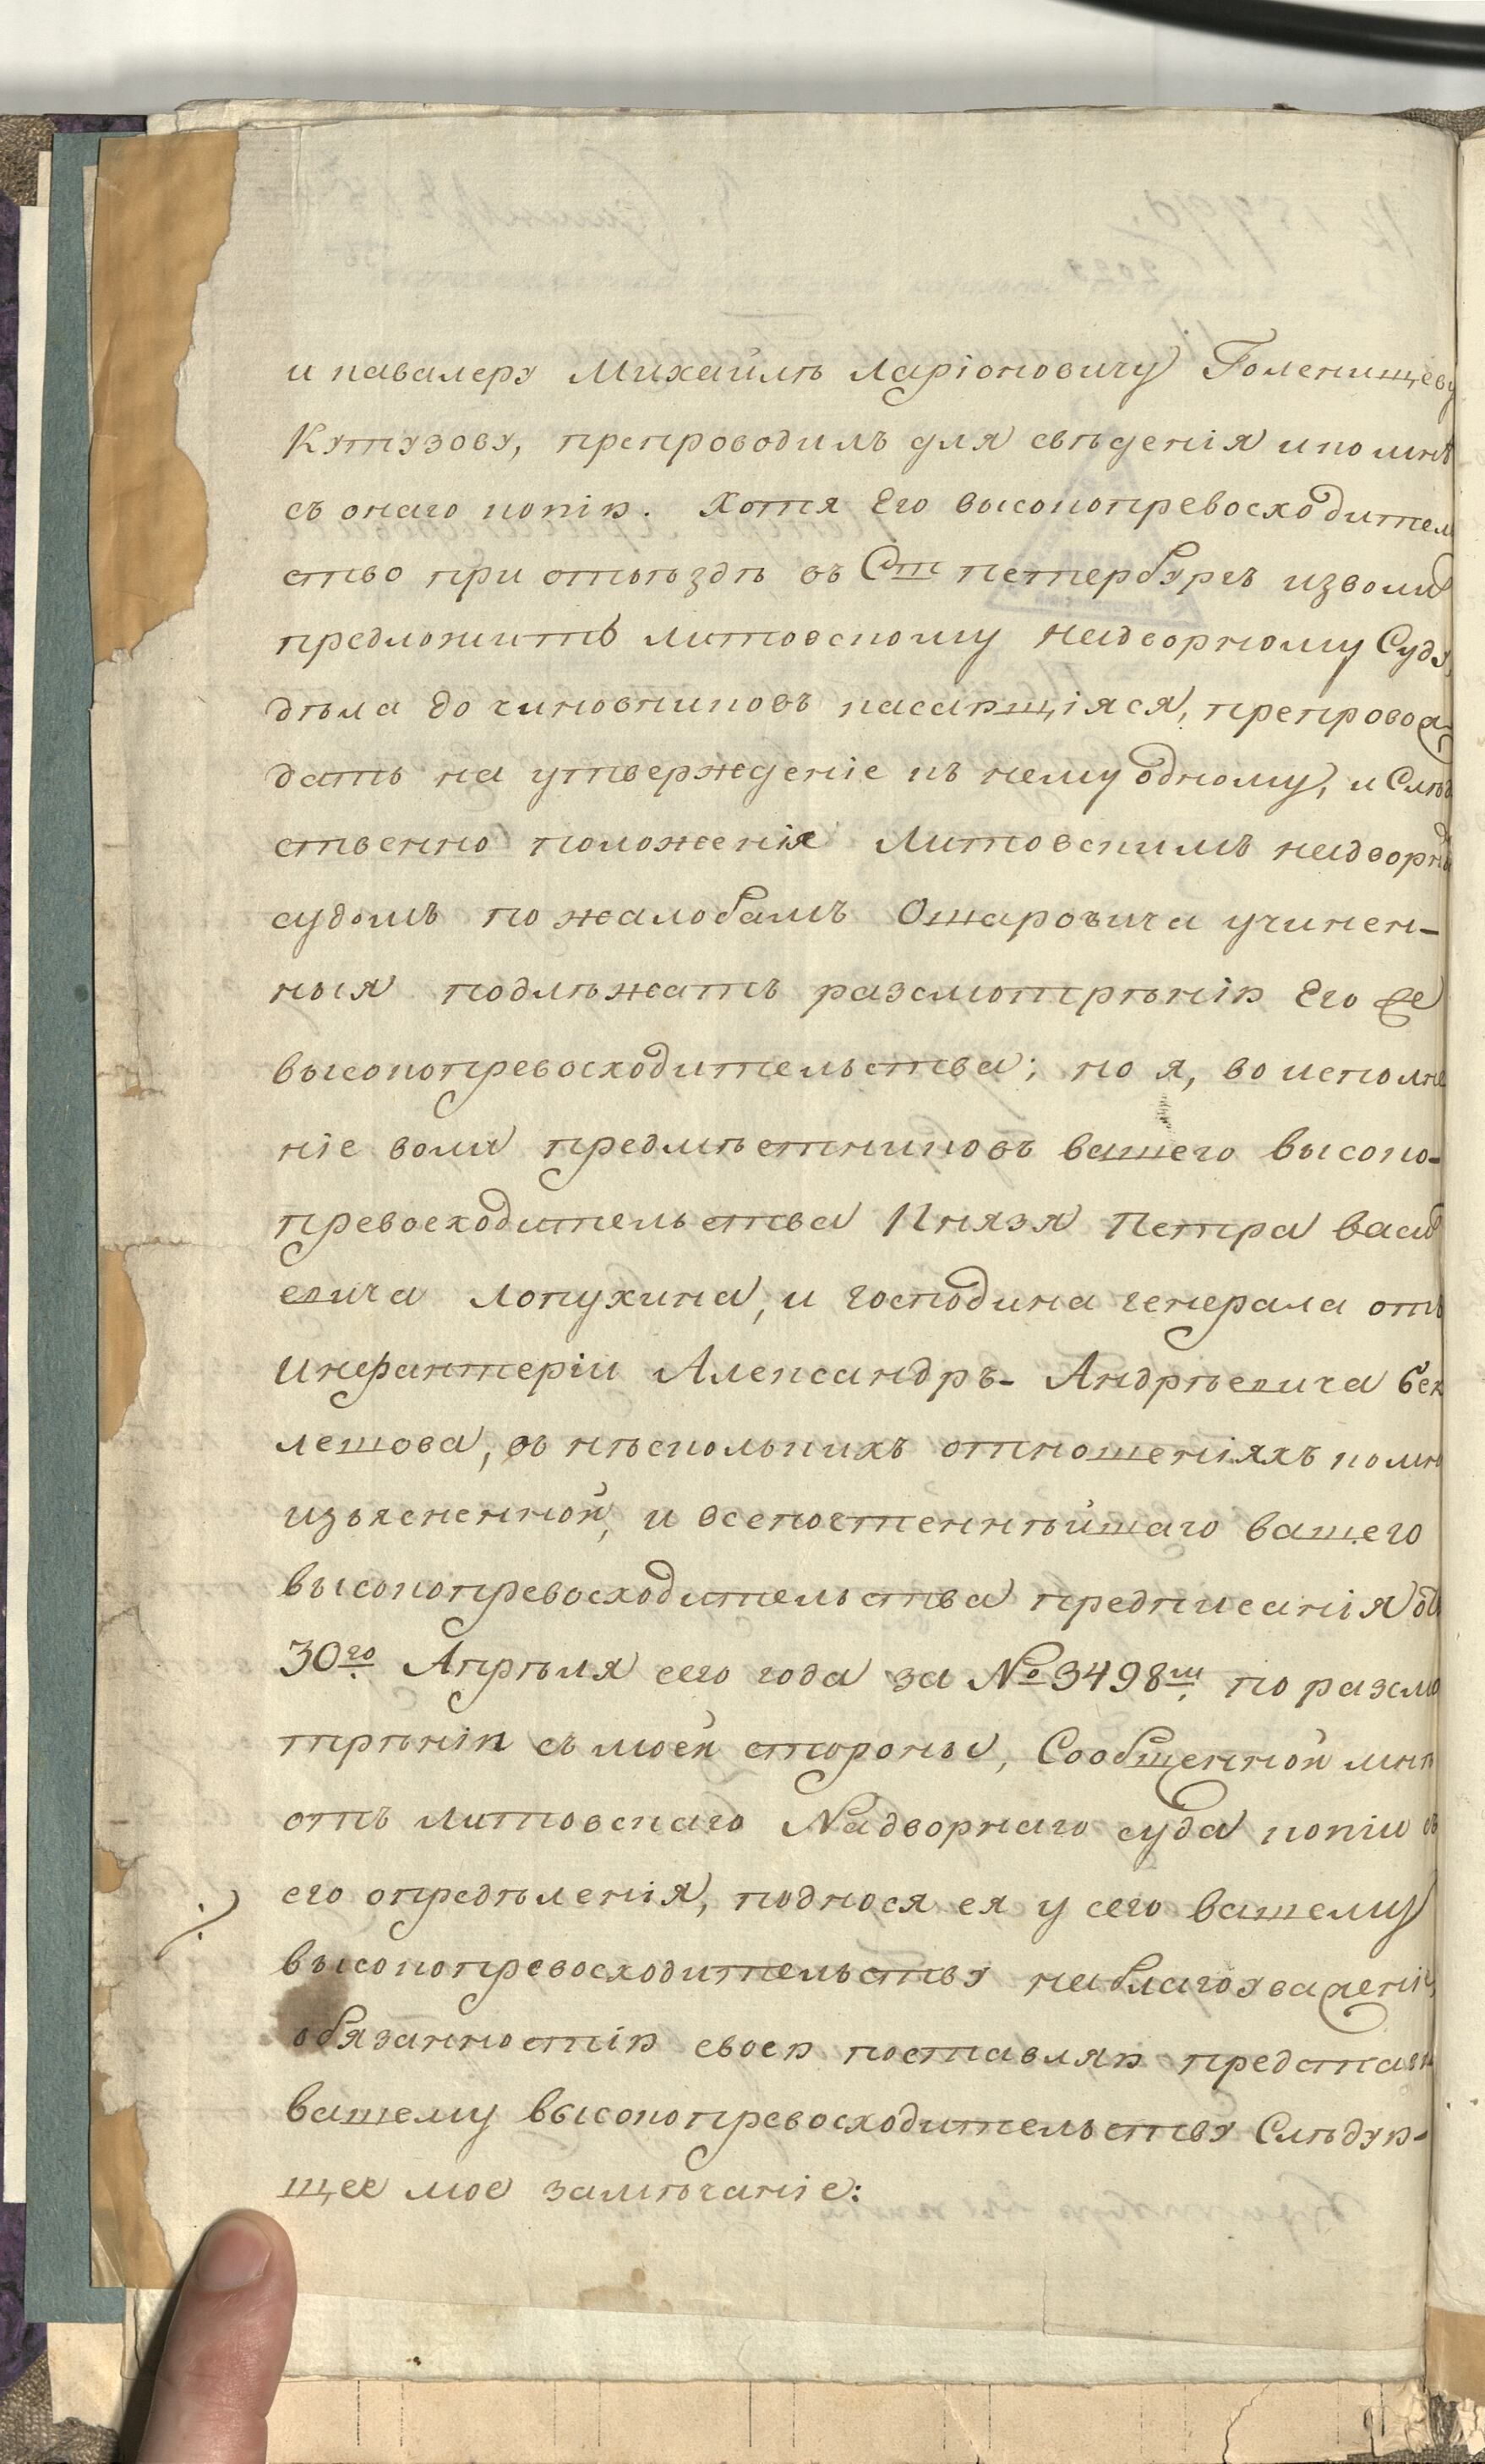 и кавалеру Михайлѣ Ларіоновичу Голенищеву
Кутузову, препроводилъ для свѣденія и ко мнѣ
съ онаго копію. Хотя Его высокопревосходитель
ство при отъѣздѣ въ Ст петербургъ изволил
предложить литовскому надворному Суду,
дѣла до чиновниковъ касающіяся, препровож
дать на утвержденіе къ нему одному, и Слѣд
ственно положенія Литовскимъ надворны
судомъ по жалобамъ Ошаровича учинен-
ныя подлѣжатъ разсмотрѣнію Его же
высокопревосходительства; но я, во исполне
ніе воли предмѣстниковъ вашего высоко-
превосходительства Князя Петра васил
евича лопухина, и господина генерала отъ
инфантеріи Александръ- Андрѣевича бек
лешова, въ нѣсколькихъ отношеніяхъ ко мнѣ
изъясненной, и всепочтеннѣйшаго вашего
высокопревосходительства предписанія отъ
30го Апрѣля сего года за №3498м по разсмо
трѣнію съ моей стороны, Сообщенной мнѣ
отъ литовскаго Надворнаго суда копіи съ
его опредѣленія, поднося ея у сего вашему
высокопревосходительству на благоуваженіе,
обязанностію своею поставляю представи
вашему высокопревосходительству Слѣдую-
щее мое замѣчаніе: